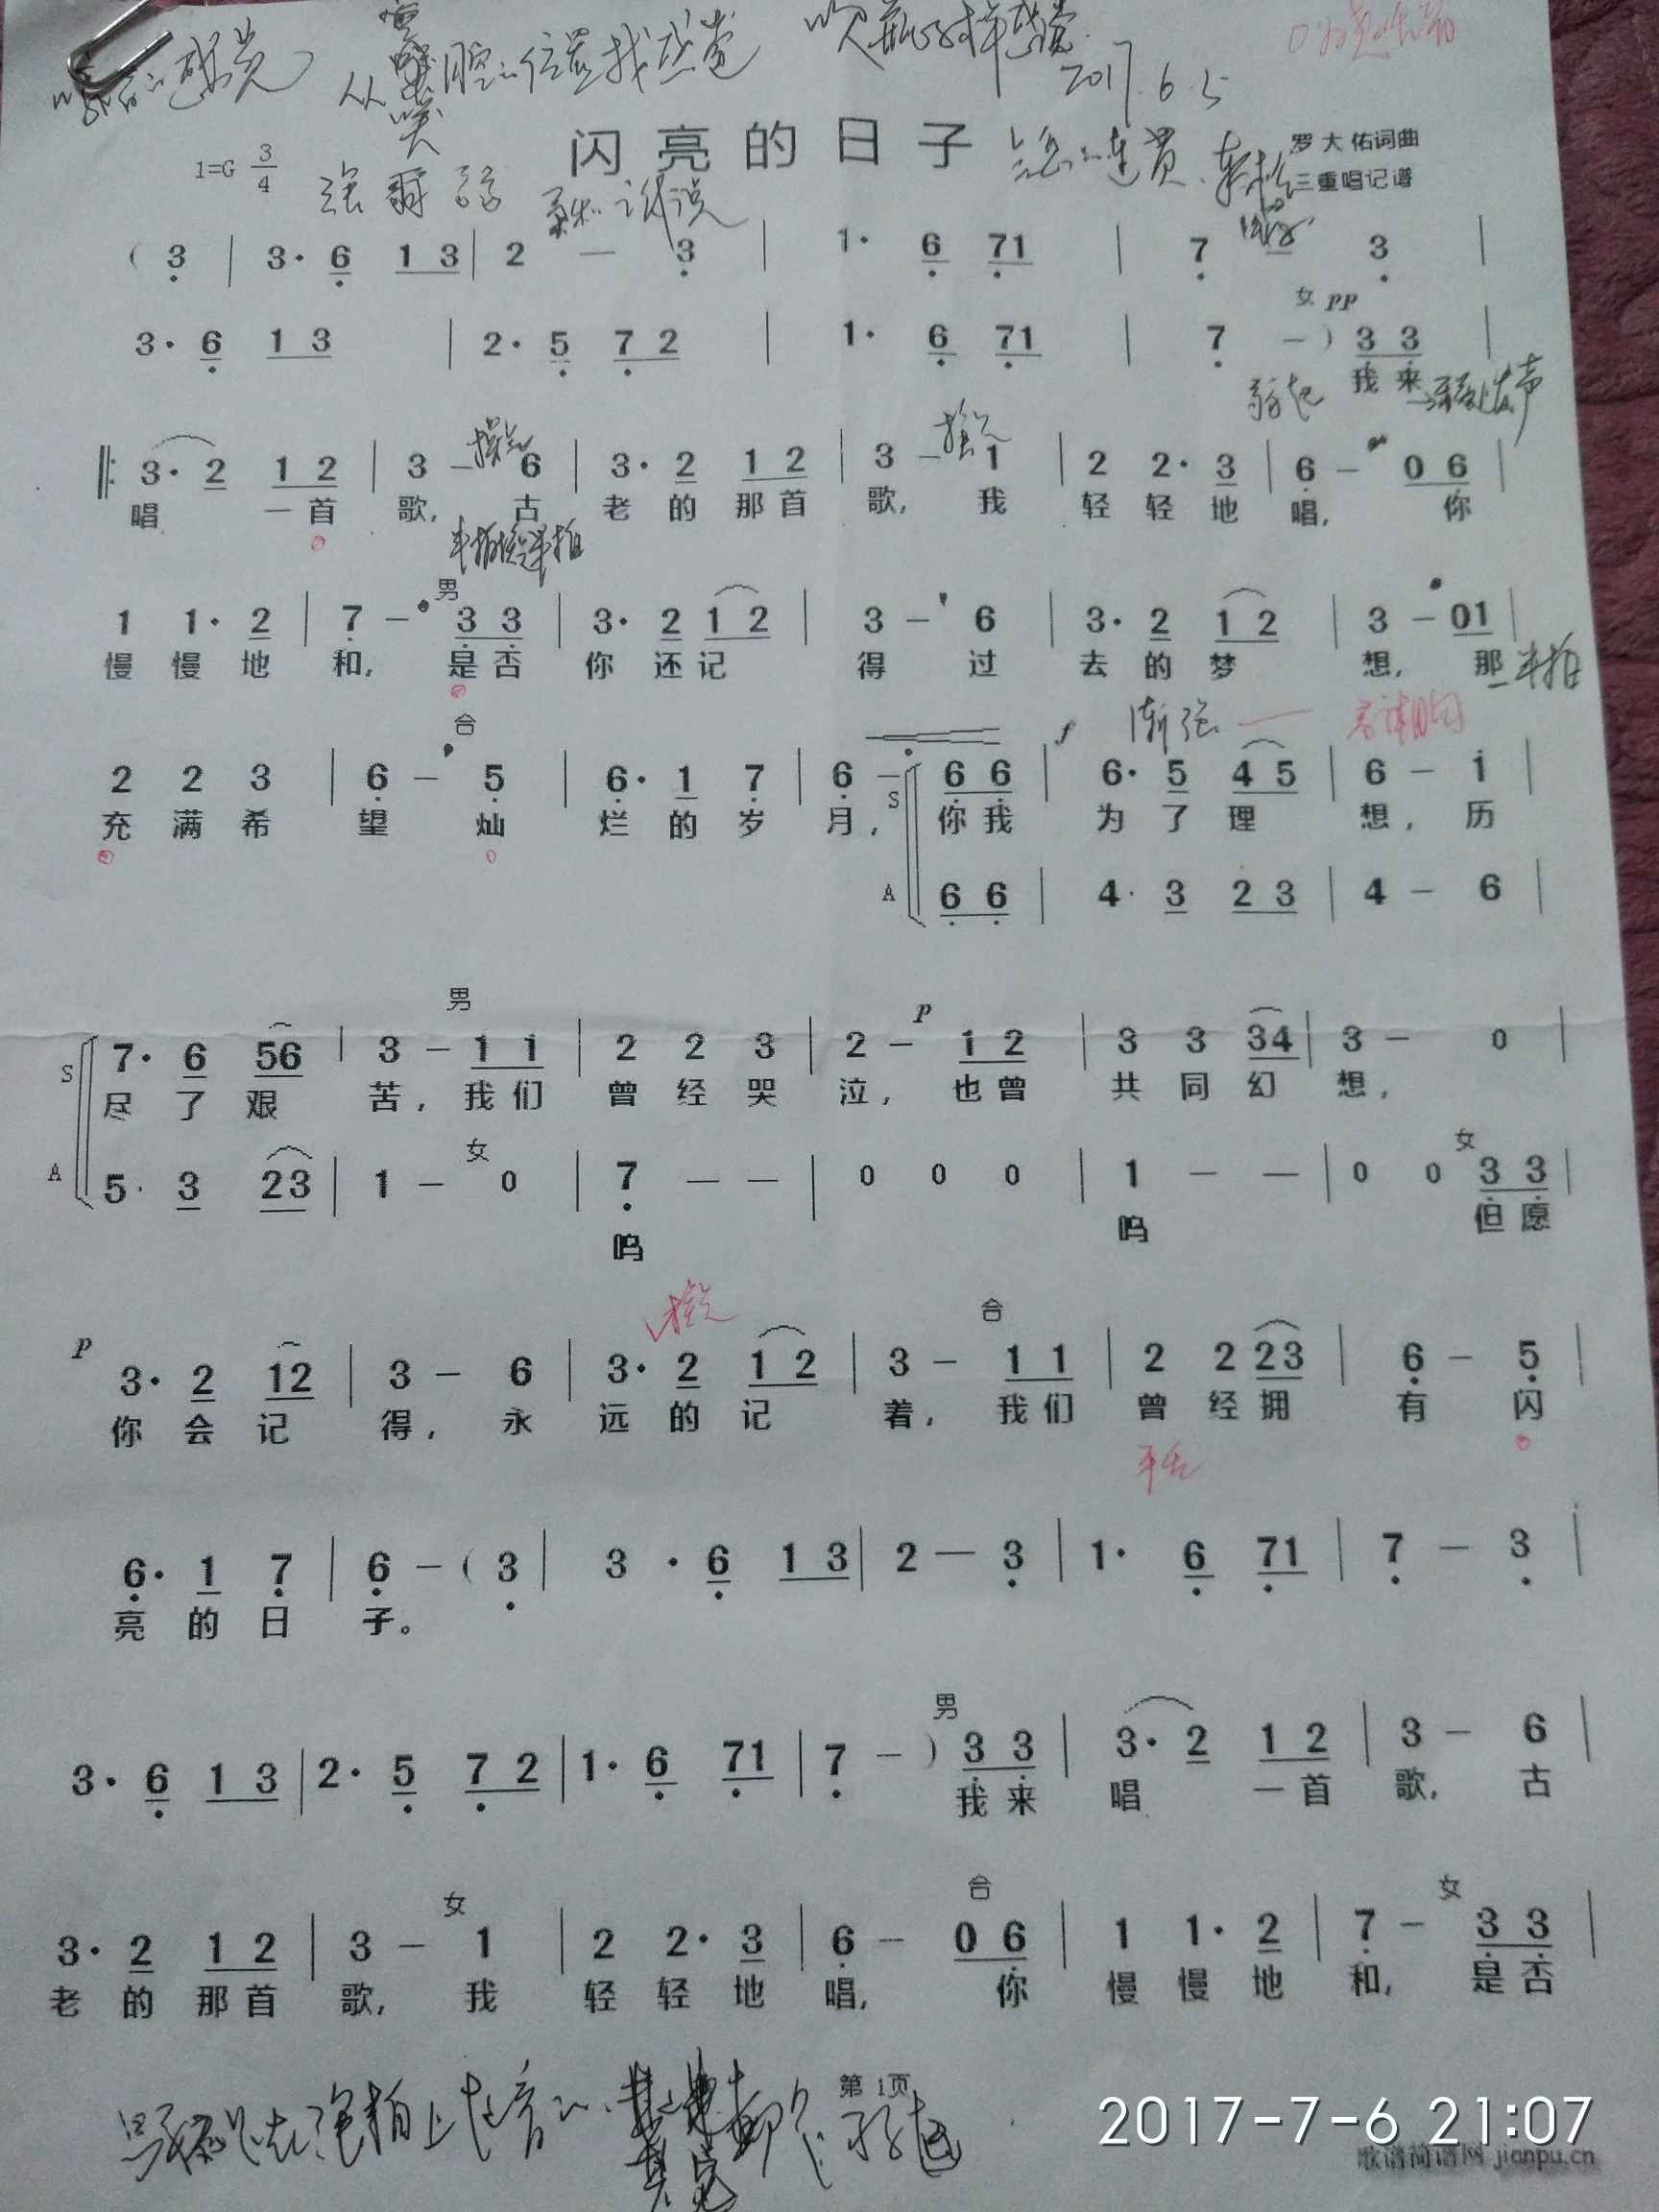 从 腔的位置找感觉
2017.6.5
闪亮的日子
罗大佑词曲
1=G 3/4
三重唱记谱
( 3 | 3· 6 1 3 | 2 — 3 | 1· 6 71 | 7 — 3 |
女 pp
3· 6 1 3 | 2· 5 7 2 | 1· 6 71 | 7 — ) 3 3 |
我来
弱起
3· 2 1 2 | 3 — 6 | 3· 2 1 2 | 3 — 1 | 2 2· 3 | 6 — 0 6 |
唱 一首 歌, 古 老 的 那首 歌, 我 轻 轻 地 唱, 你
男
1 1· 2 | 7 — 3 3 | 3· 2 1 2 | 3 — 6 | 3· 2 1 2 | 3 — 01 |
慢 慢 地 和, 是否 你 还记 得 过 去 的 梦 想, 那
半拍
合
f 渐强
2 2 3 | 6 — 5 | 6· 1 7 | 6 — S 6 6 | 6· 5 4 5 | 6 — i |
充 满 希 望 灿 烂 的 岁 月, 你我 为 了 理 想, 历
A 6 6 | 4· 3 2 3 | 4 — 6 |
男 p
S 7· 6 56 | 3 — 1 1 | 2 2 3 | 2 — 1 2 | 3 3 34 | 3 — 0 |
尽 了 艰 苦, 我们 曾 经 哭 泣, 也曾 共 同 幻 想,
女 女
A 5· 3 23 | 1 — 0 | 7 — — | 0 0 0 | 1 — — | 0 0 3 3 |
呜 呜 但愿
合
p 3· 2 12 | 3 — 6 | 3· 2 1 2 | 3 — 1 1 | 2 2 23 | 6 — 5 |
你 会 记 得, 永 远 的 记 着, 我们 曾 经 拥 有 闪
6· 1 7 | 6 — ( 3 | 3 · 6 1 3 | 2 — 3 | 1· 6 71 | 7 — 3 |
亮 的 日 子。
男
3· 6 1 3 | 2· 5 7 2 | 1· 6 71 | 7 — ) 3 3 | 3· 2 1 2 | 3 — 6 |
我来 唱 一首 歌, 古
女 合 女
3· 2 1 2 | 3 — 1 | 2 2· 3 | 6 — 0 6 | 1 1· 2 | 7 — 3 3 |
老 的 那首 歌, 我 轻 轻 地 唱, 你 慢 慢 地 和, 是否
第 1页
2017-7-6 21:07
歌谱简谱网 jianpu.cn